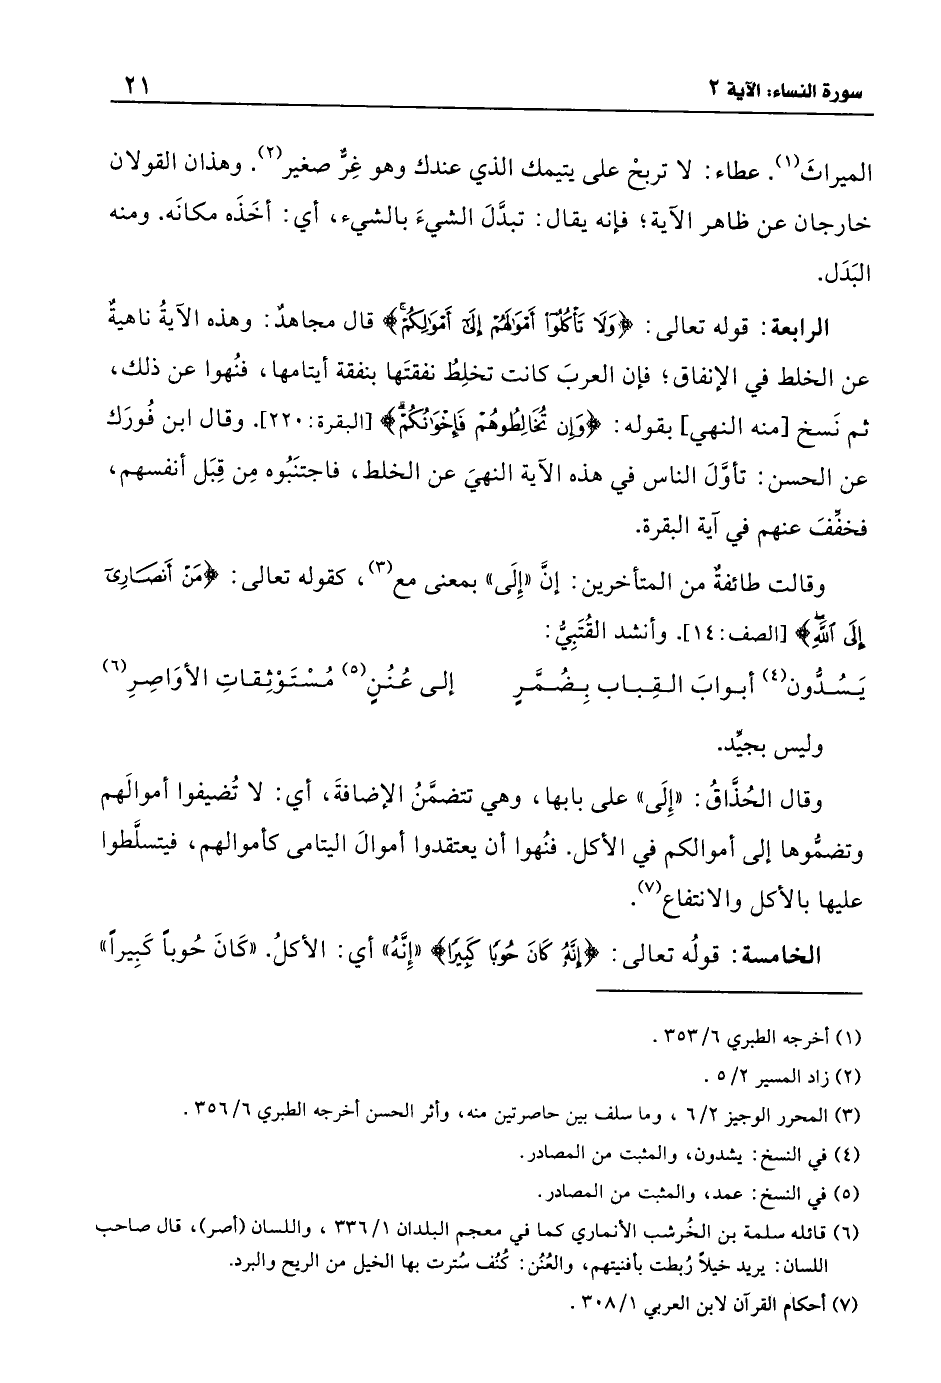 سورة النساء: الآية ٢
٢١
الميراثَ(١). عطاء: لا تربحْ على يتيمك الذي عندك وهو غِرٌّ صغير(٢). وهذان القولان
خارجان عن ظاهر الآية؛ فإنه يقال: تبدَّلَ الشيءَ بالشيء، أي: أخَذَه مكانَه. ومنه
البَدَل.
الرابعة: قوله تعالى: ﴿وَلَا تَأْكُلُوٓا۟ أَمْوَٰلَهُمْ إِلَىٰٓ أَمْوَٰلِكُمْ ۚ﴾ قال مجاهدٌ: وهذه الآيةُ ناهيةٌ
عن الخلط في الإنفاق؛ فإن العربَ كانت تخلِطُ نفقتَها بنفقة أيتامها، فنُهوا عن ذلك،
ثم نَسخ [منه النهي] بقوله: ﴿وَإِن تُخَالِطُوهُمْ فَإِخْوَٰنُكُمْ ۚ﴾ [البقرة: ٢٢٠]. وقال ابن فُورَك
عن الحسن: تأوَّلَ الناس في هذه الآية النهيَ عن الخلط، فاجتنَبُوه مِن قِبَل أنفسهم،
فخفِّفَ عنهم في آية البقرة.
وقالت طائفةٌ من المتأخرين: إنَّ «إِلَى» بمعنى مع(٣)، كقوله تعالى: ﴿مَنْ أَنصَارِىٓ
إِلَى ٱللَّهِ ۖ﴾ [الصف: ١٤]. وأنشد القُتَبِيُّ:
يَسُدُّون(٤) أبوابَ القِباب بِضُمَّرٍ إلى عُنُنٍ(٥) مُسْتَوْثِقاتِ الأوَاصِرِ(٦)
وليس بجيِّد.
وقال الحُذَّاقُ: «إِلَى» على بابها، وهي تتضمَّنُ الإضافةَ، أي: لا تُضيفوا أموالَهم
وتضمُّوها إلى أموالكم في الأكل. فنُهوا أن يعتقدوا أموالَ اليتامى كأموالهم، فيتسلَّطوا
عليها بالأكل والانتفاع(٧).
الخامسة: قولُه تعالى: ﴿إِنَّهُۥ كَانَ حُوبًا كَبِيرًا﴾ «إِنَّهُ» أي: الأكلُ. «كَانَ حُوباً كَبِيراً»
(١) أخرجه الطبري ٦/ ٣٥٣ .
(٢) زاد المسير ٢/ ٥ .
(٣) المحرر الوجيز ٢/ ٦ ، وما سلف بين حاصرتين منه، وأثر الحسن أخرجه الطبري ٦/ ٣٥٦ .
(٤) في النسخ: يشدون، والمثبت من المصادر.
(٥) في النسخ: عمد، والمثبت من المصادر.
(٦) قائله سلمة بن الخُرشب الأنماري كما في معجم البلدان ١/ ٣٣٦ ، واللسان (أصر)، قال صاحب
اللسان: يريد خيلاً رُبطت بأفنيتهم، والعُنُن: كُنُف سُترت بها الخيل من الريح والبرد.
(٧) أحكام القرآن لابن العربي ١/ ٣٠٨ .